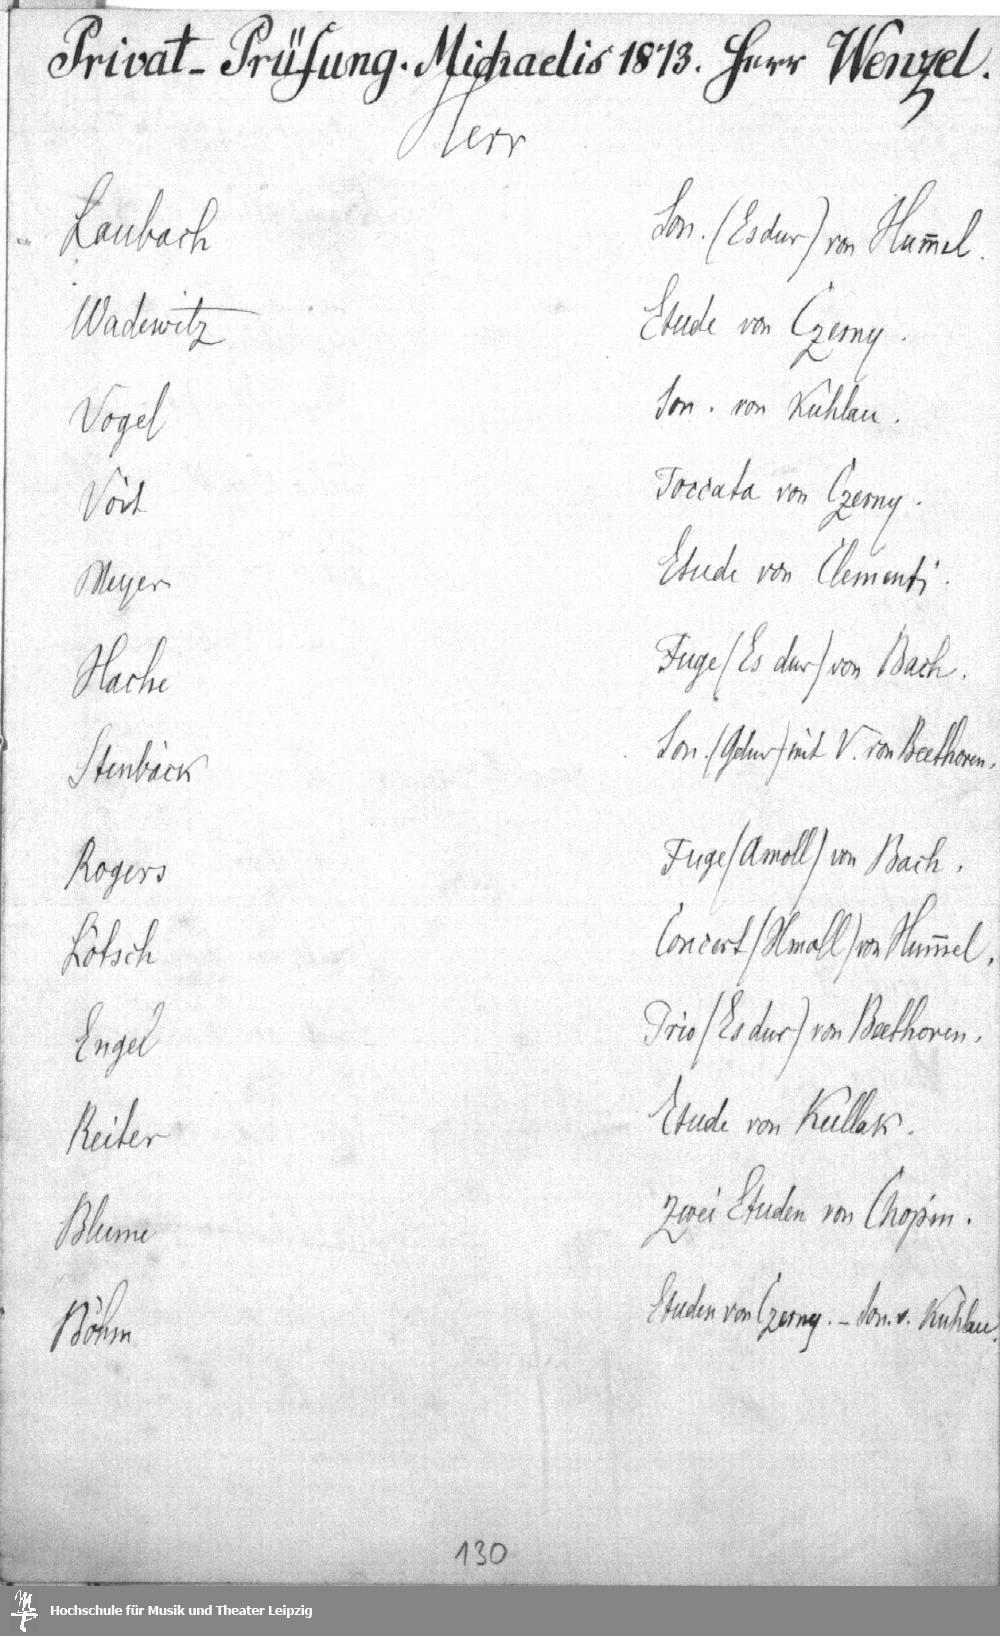 Privat-Prüfung. Michaelis 1873. Herr Wenzel.
Herr
Laubach Son. (Esdur) von Hum̄el.
Wadewitz Etude von Czerny.
Vogel Son. von Kuhlau.
Voit Toccata von Czerny.
Meyer Etude von Clementi.
Hache Fuge (Es dur) von Bach.
Stenbäck Son. (Gdur) mit V. von Beethoven.
Rogers Fuge (Amoll) von Bach.
Lötsch Concert (Hmoll) von Hum̄el.
Engel Trio (Es dur) von Beethoven.
Reiter Etude von Kullak.
Blume Zwei Etuden von Chopin.
Böhm Etuden von Czerny. - Son. v. Kuhlau.
130
Hochschule für Musik und Theater Leipzig